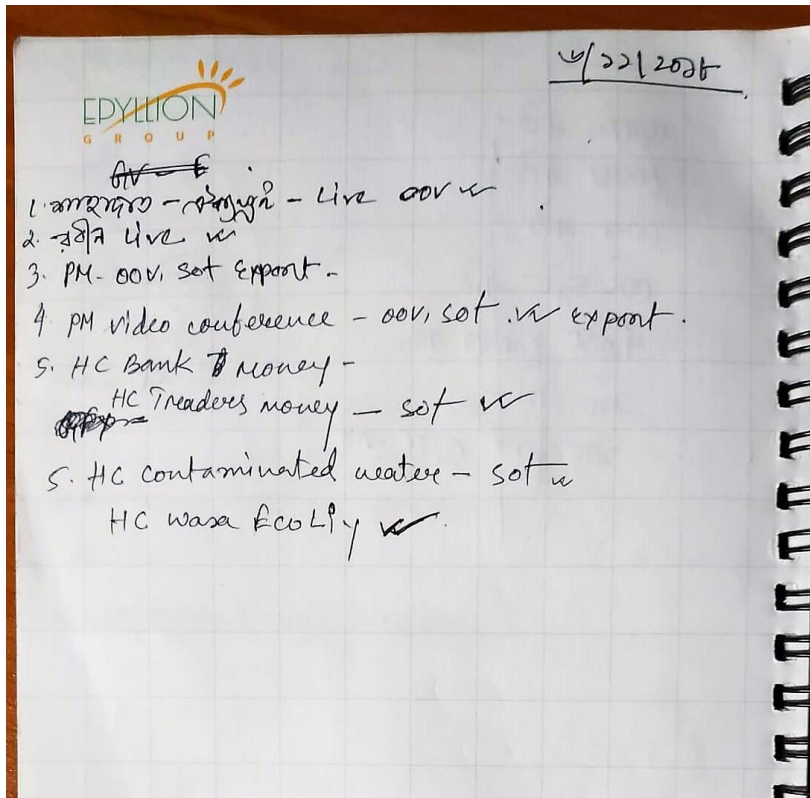 ৬/১১/২০১৮
EPYLLION
GROUP
1. - Live OOV
2. রবীন Live
3. PM - OOV, Sot Export -
4 PM video conference - OOV, Sot. export.
5. HC Bank money -
HC Treaders money - Sot
5. HC contaminated water - Sot
HC wasa EcoLiy